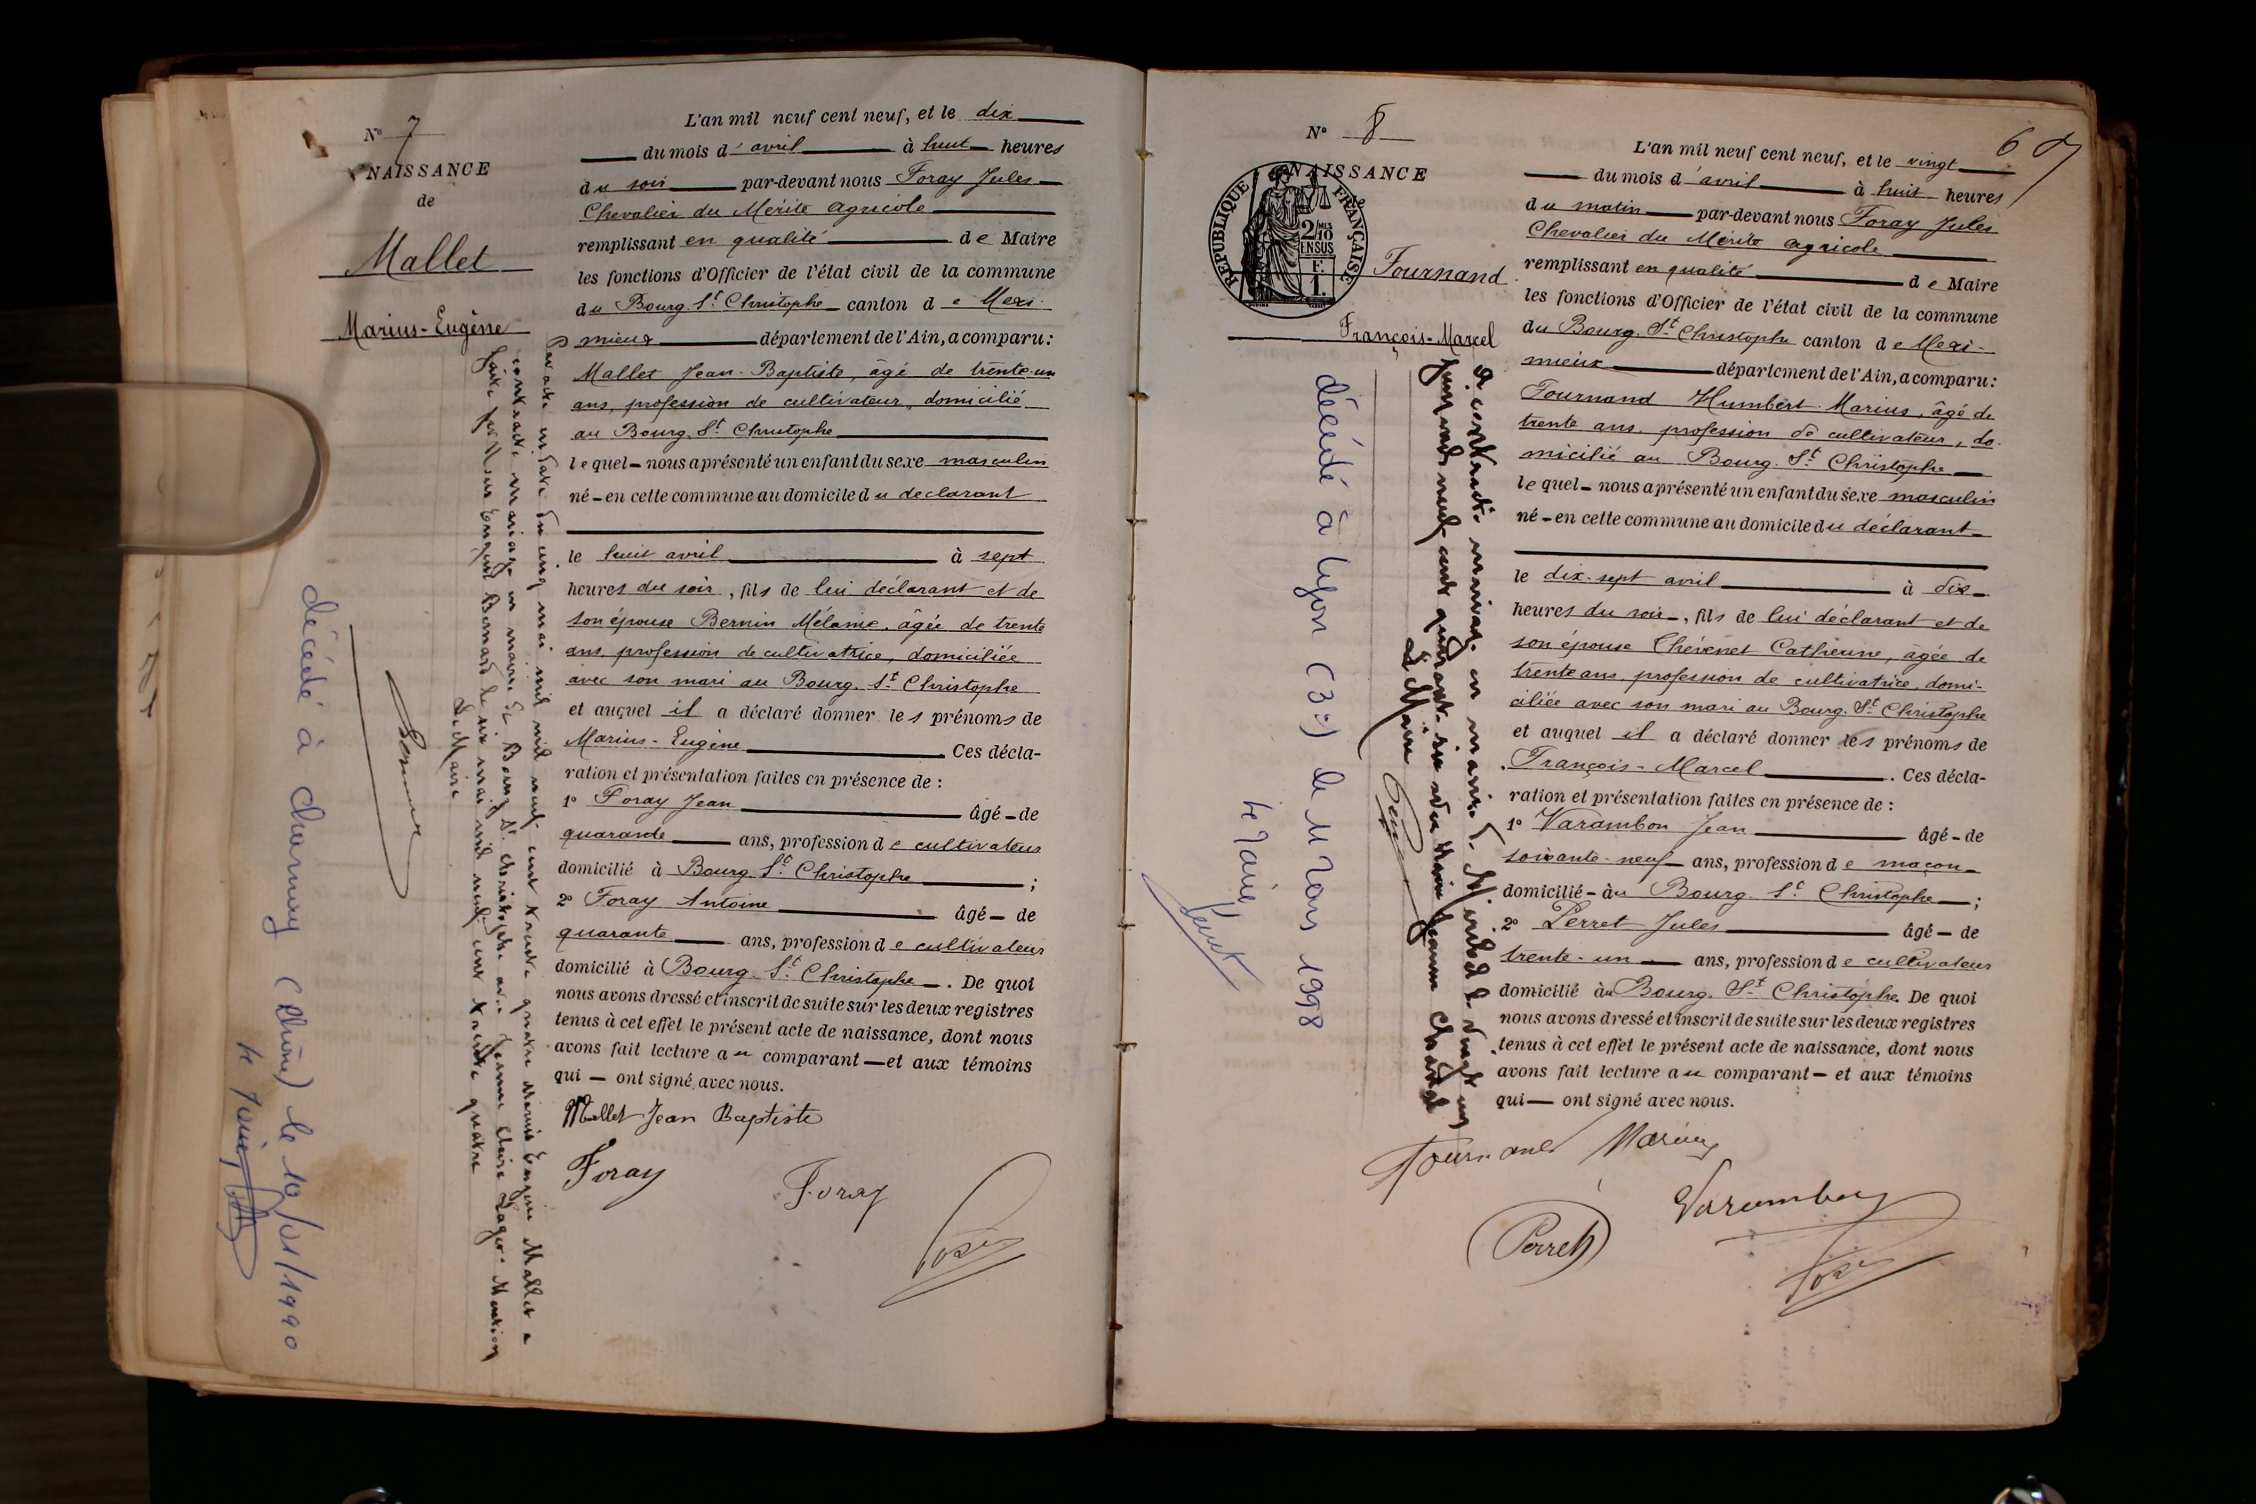 N° 7
NAISSANCE
de
Mallet
Marius-Eugène
L'an mil neuf cent neuf, et le dix
du mois d'avril à huit heures
du soir par-devant nous Foray Jules
Chevalier du Mérite Agricole
remplissant en qualité de Maire
les fonctions d'Officier de l'état civil de la commune
du Bourg-St Christophe canton de Mexi-
mieux département de l'Ain, a comparu:
Mallet Jean-Baptiste, âgé de trente-un
ans, profession de cultivateur, domicilié
au Bourg-St Christophe
lequel nous a présenté un enfant du sexe masculin
né en cette commune au domicile du déclarant
le huit avril à sept
heures du soir, fils de lui déclarant et de
son épouse Bernin Mélanie, âgée de trente
ans, profession de cultivatrice, domiciliée
avec son mari au Bourg-St Christophe
et auquel il a déclaré donner les prénoms de
Marius-Eugène Ces décla-
ration et présentation faites en présence de :
1° Foray Jean âgé de
quarante ans, profession de cultivateur
domicilié à Bourg-St Christophe ;
2° Foray Antoine âgé de
quarante ans, profession de cultivateur
domicilié à Bourg-St Christophe. De quoi
nous avons dressé et inscrit de suite sur les deux registres
tenus à cet effet le présent acte de naissance, dont nous
avons fait lecture au comparant et aux témoins
qui ont signé avec nous.
Mallet Jean Baptiste
Foray
Foray
Par acte en date du cinq mai mil neuf cent trente quatre Marius Eugène Mallet a
contracté mariage en mairie de Bourg St Christophe avec Jeanne Claire Mention
faite par Nous Bernard le six mai mil neuf cent trente quatre
Le Maire
décédé à Charnay (Rhône) le 10/01/1990
le Maire
N° 8
NAISSANCE
RÉPUBLIQUE FRANÇAISE
2/10 EN SUS
F.
1.
Fournand
François-Marcel
67
L'an mil neuf cent neuf, et le vingt
du mois d'avril à huit heures
du matin par-devant nous Foray Jules
Chevalier du Mérite Agricole
remplissant en qualité de Maire
les fonctions d'Officier de l'état civil de la commune
du Bourg-St Christophe canton de Mexi-
mieux département de l'Ain, a comparu:
Fournand Humbert-Marius, âgé de
trente ans, profession de cultivateur, do-
micilié au Bourg-St Christophe
lequel nous a présenté un enfant du sexe masculin
né en cette commune au domicile du déclarant
le dix-sept avril à dix
heures du soir, fils de lui déclarant et de
son épouse Chévenet Catherine, âgée de
trente ans, profession de cultivatrice, domi-
ciliée avec son mari au Bourg-St Christophe
et auquel il a déclaré donner les prénoms de
François-Marcel. Ces décla-
ration et présentation faites en présence de :
1° Varambon Jean âgé de
soixante-neuf ans, profession de maçon
domicilié au Bourg-St Christophe ;
2° Perret Jules âgé de
trente-un ans, profession de cultivateur
domicilié au Bourg-St Christophe. De quoi
nous avons dressé et inscrit de suite sur les deux registres
tenus à cet effet le présent acte de naissance, dont nous
avons fait lecture au comparant et aux témoins
qui ont signé avec nous.
Fournand Marius
Varambon
Perret
A contracté mariage en mairie de le vingt un
juin mil neuf cent quarante-six avec Jeanne
Le Maire
décédé à Lyon (3e) le 11 Mars 1998
le Maire,